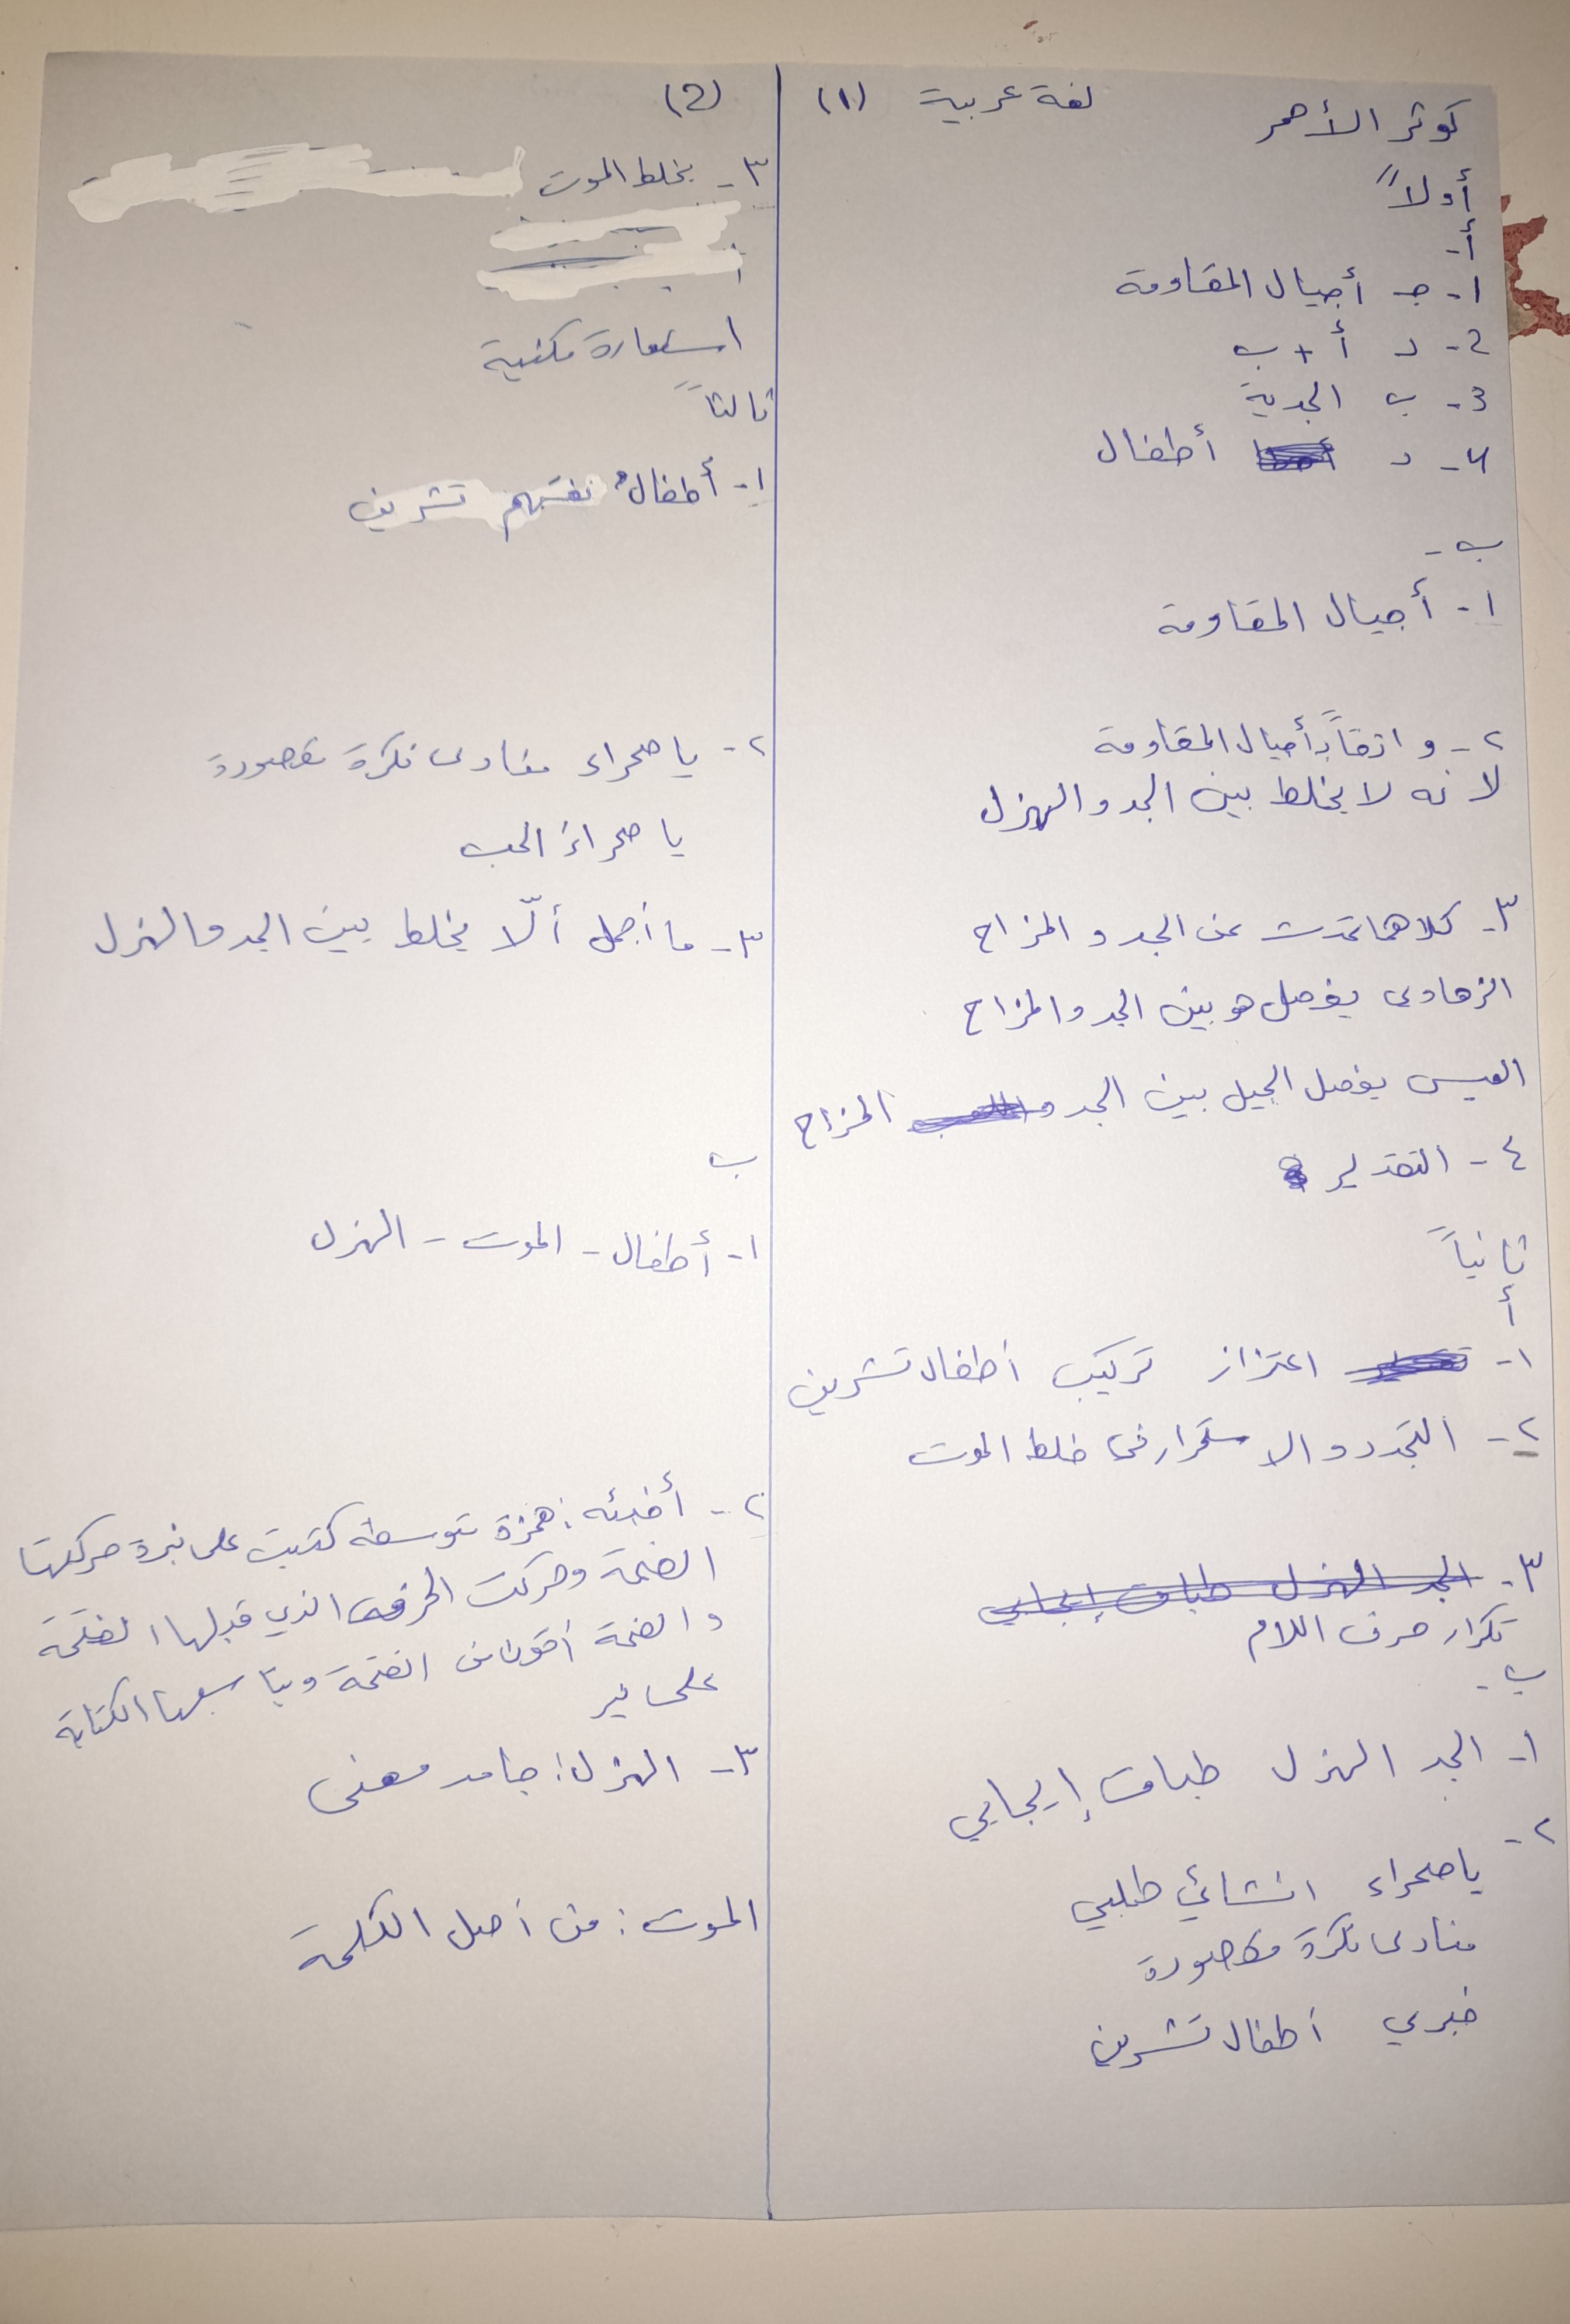 كوثر الأحمر
لغة عربية (١)
أولاً
أ-
١- جـ أجيال المقاومة
2- د أ + ب
3- ب الجدية
4- د أطفال
ب -
١- أجيال المقاومة
٢- واثقاً بأجيال المقاومة
لانه لا يخلط بين الجد والهزل
٣- كلاهما تحدث عن الجد و المزاح
الزهاوي يفصل هو بين الجد والمزاح
العيسى يفصل الجيل بين الجد و المزاح
٤- التقدير
ثانياً
أ
١- اعتزاز تركيب أطفال تشرين
٢- التجدد والاستمرار في خلط الموت
٣- الجد الهزل طباق إيجابي
تكرار حرف اللام
ب-
١- الجد الهزل طباق إيجابي
٢-
يا صحراء انشائي طلبي
منادى نكرة مقصودة
خبري أطفال تشرين
(2)
٣- يخلط الموت
استعارة مكنية
ثالثاً
١- أطفال نفسهم تشرين
٢- يا صحراء منادى نكرة مقصودة
يا صحراء الحب
٣- ما أجمل ألّا يخلط بين الجد والهزل
ب
١- أطفال - الموت - الهزل
٢- : همزة متوسطة كتبت على نبرة حركتها
الضمة وحركت الحرف الذي قبلها الفتحة
والضمة أقوى من الفتحة ويناسبها الكتابة
على
٣- الهزل: جامد معنى
الموت: من أصل الكلمة